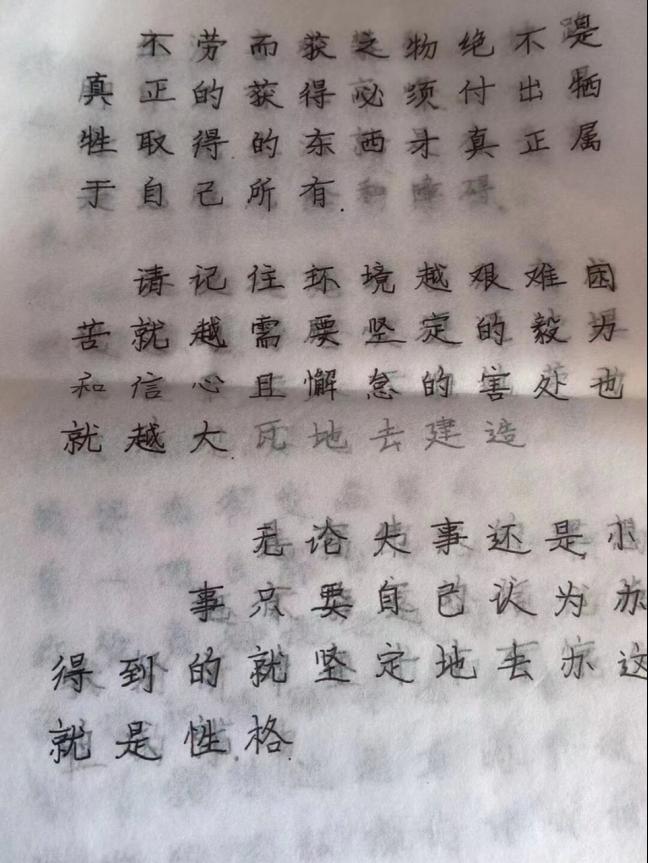 不劳而获之物绝不是
真正的获得必须付出牺
牲取得的东西才真正属
于自己所有.和障碍
请记住环境越艰难困
苦就越需要坚定的毅力
和信心且懈怠的害处也
就越大.瓦地去建造
无论大事还是小
事只要自己认为办
得到的就坚定地去办这
就是性格.